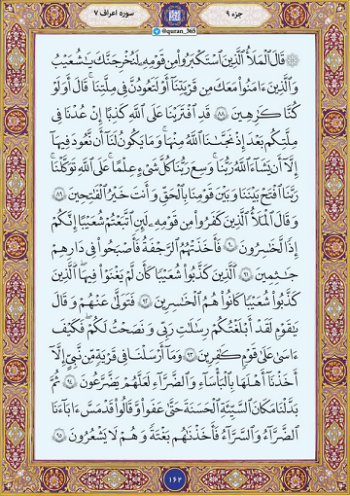 جزء ۹
سوره اعراف ۷
@quran_365
قَالَ ٱلْمَلَأُ ٱلَّذِينَ ٱسْتَكْبَرُوا۟ مِن قَوْمِهِۦ لَنُخْرِجَنَّكَ يَـٰشُعَيْبُ
وَٱلَّذِينَ ءَامَنُوا۟ مَعَكَ مِن قَرْيَتِنَآ أَوْ لَتَعُودُنَّ فِى مِلَّتِنَا ۚ قَالَ أَوَلَوْ
كُنَّا كَـٰرِهِينَ ۸۸ قَدِ ٱفْتَرَيْنَا عَلَى ٱللَّهِ كَذِبًا إِنْ عُدْنَا فِى
مِلَّتِكُم بَعْدَ إِذْ نَجَّىٰنَا ٱللَّهُ مِنْهَا ۚ وَمَا يَكُونُ لَنَآ أَن نَّعُودَ فِيهَآ
إِلَّآ أَن يَشَآءَ ٱللَّهُ رَبُّنَا ۚ وَسِعَ رَبُّنَا كُلَّ شَىْءٍ عِلْمًا ۚ عَلَى ٱللَّهِ تَوَكَّلْنَا ۚ
رَبَّنَا ٱفْتَحْ بَيْنَنَا وَبَيْنَ قَوْمِنَا بِٱلْحَقِّ وَأَنتَ خَيْرُ ٱلْفَـٰتِحِينَ ۸۹
وَقَالَ ٱلْمَلَأُ ٱلَّذِينَ كَفَرُوا۟ مِن قَوْمِهِۦ لَئِنِ ٱتَّبَعْتُمْ شُعَيْبًا إِنَّكُمْ
إِذًا لَّخَـٰسِرُونَ ۹۰ فَأَخَذَتْهُمُ ٱلرَّجْفَةُ فَأَصْبَحُوا۟ فِى دَارِهِمْ
جَـٰثِمِينَ ۹۱ ٱلَّذِينَ كَذَّبُوا۟ شُعَيْبًا كَأَن لَّمْ يَغْنَوْا۟ فِيهَا ۚ ٱلَّذِينَ
كَذَّبُوا۟ شُعَيْبًا كَانُوا۟ هُمُ ٱلْخَـٰسِرِينَ ۹۲ فَتَوَلَّىٰ عَنْهُمْ وَقَالَ
يَـٰقَوْمِ لَقَدْ أَبْلَغْتُكُمْ رِسَـٰلَـٰتِ رَبِّى وَنَصَحْتُ لَكُمْ ۖ فَكَيْفَ
ءَاسَىٰ عَلَىٰ قَوْمٍ كَـٰفِرِينَ ۹۳ وَمَآ أَرْسَلْنَا فِى قَرْيَةٍ مِّن نَّبِىٍّ إِلَّآ
أَخَذْنَآ أَهْلَهَا بِٱلْبَأْسَآءِ وَٱلضَّرَّآءِ لَعَلَّهُمْ يَضَّرَّعُونَ ۹۴ ثُمَّ
بَدَّلْنَا مَكَانَ ٱلسَّيِّئَةِ ٱلْحَسَنَةَ حَتَّىٰ عَفَوا۟ وَّقَالُوا۟ قَدْ مَسَّ ءَابَآءَنَا
ٱلضَّرَّآءُ وَٱلسَّرَّآءُ فَأَخَذْنَـٰهُم بَغْتَةً وَهُمْ لَا يَشْعُرُونَ ۹۵
۱۶۲